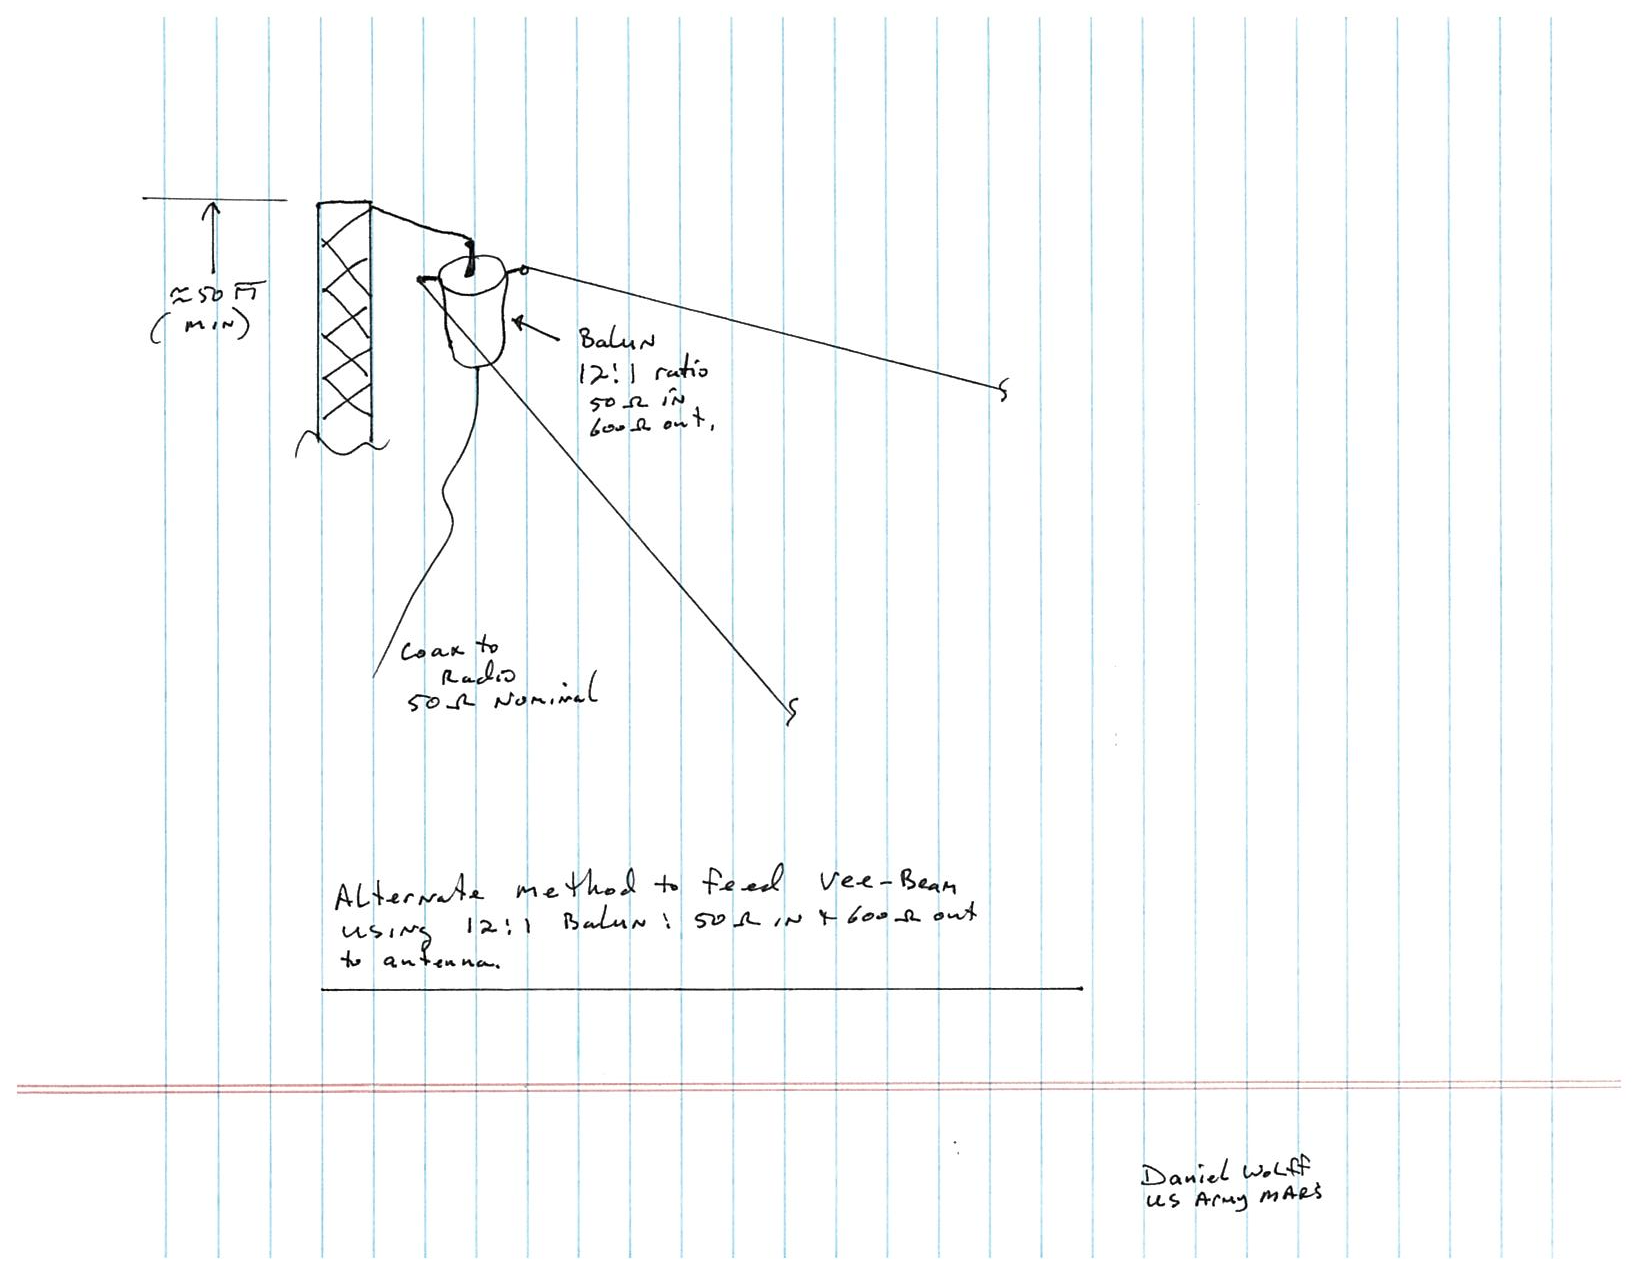 ≈50 FT
(MIN)
Balun
12:1 ratio
50 Ω in
600 Ω out.
Coax to
Radio
50 Ω Nominal
Alternate method to feed Vee-Beam
using 12:1 Balun: 50 Ω in & 600 Ω out
to antenna.
Daniel Wolff
US Army MARS